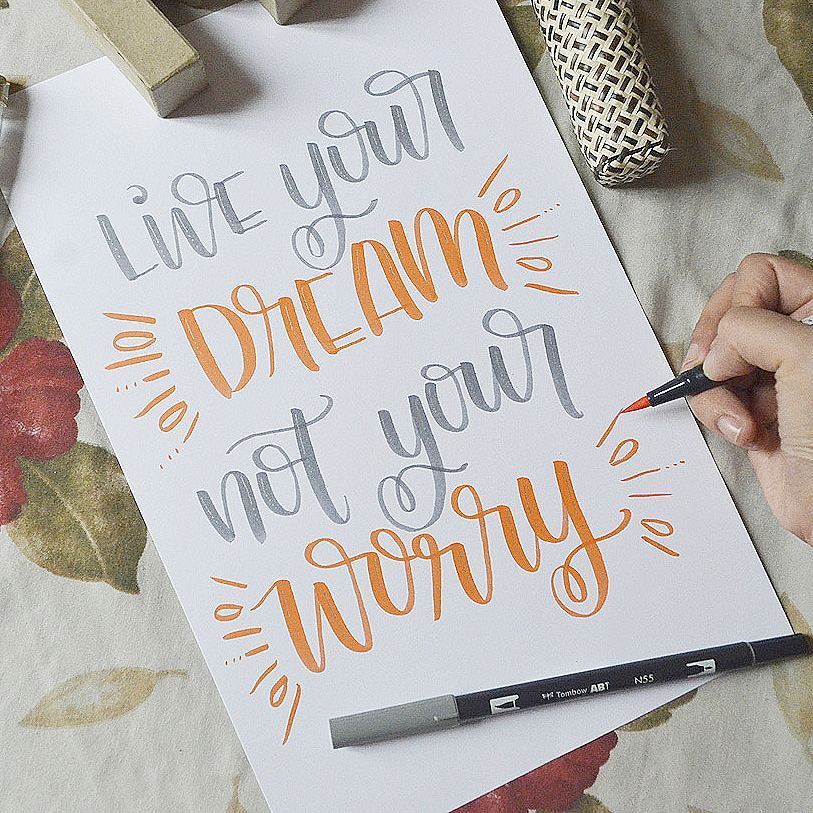 Live your
DREAM
not your
worry
Tombow ABT N55